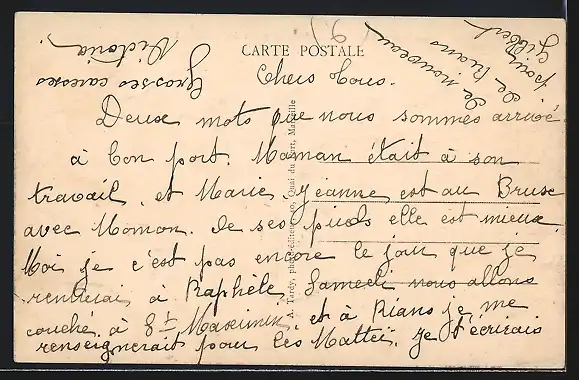 CARTE POSTALE
Chers tous.
Deux mots que nous sommes arrivé
à bon port. Maman était à son
travail, et Marie, Jeanne est au Brusc
avec Momon. de ses pieds elle est mieux.
Moi je c'est pas encore le jour que je
rentrerai à Raphèle. Samedi nous allons
couché à St Maximin, et à Rians je me
renseignerait pour les Matteï. je t'écrirais
le nouveau
de Rians
pour
Gilbert
Grosses caresses
Victoria.
A. Tardy, photo-éditeur, Quai du Port, Marseille